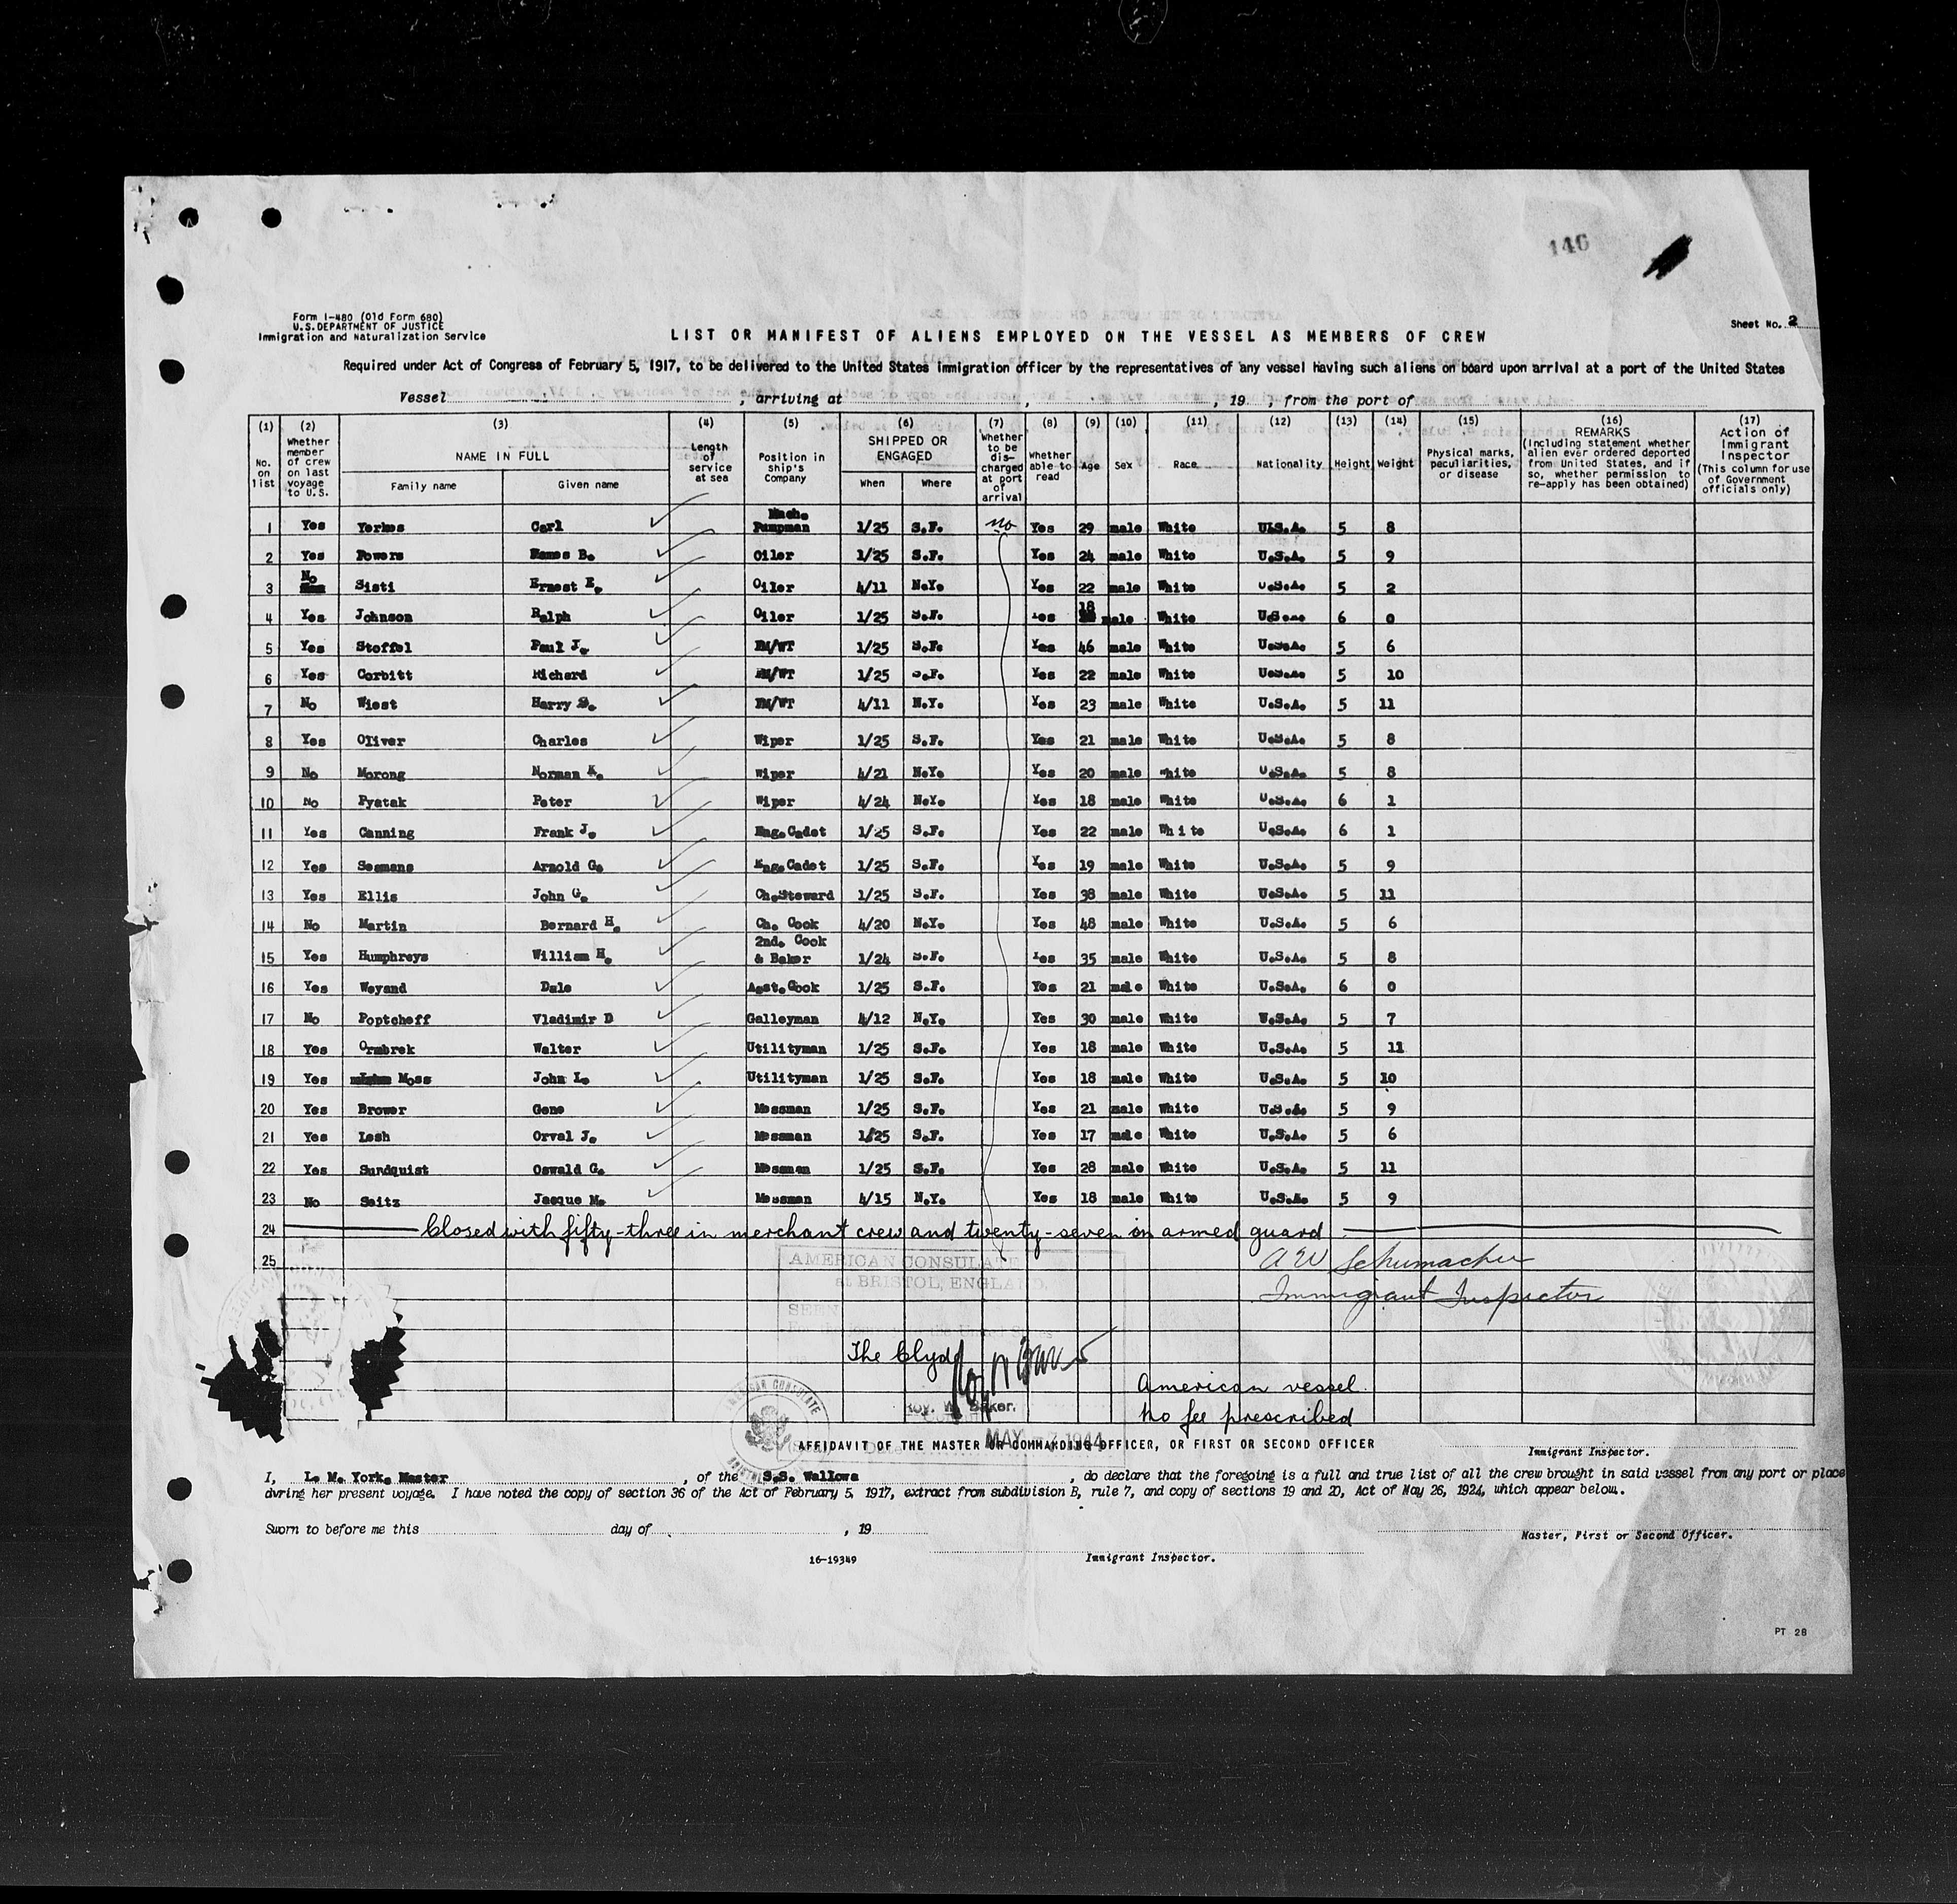 146
Form I-480 (Old Form 680)
U.S. DEPARTMENT OF JUSTICE
Immigration and Naturalization Service
LIST OR MANIFEST OF ALIENS EMPLOYED ON THE VESSEL AS MEMBERS OF CREW
Sheet No. 2
Required under Act of Congress of February 5, 1917, to be delivered to the United States immigration officer by the representatives of any vessel having such aliens on board upon arrival at a port of the United States
Vessel , arriving at , , 19 , from the port of
(1) No. on list (2) Whether member of crew on last voyage to U.S. (3) NAME IN FULL Family name Given name (4) Length of service at sea (5) Position in ship's Company (6) SHIPPED OR ENGAGED When Where (7) Whether to be discharged at port of arrival (8) Whether able to read (9) Age (10) Sex (11) Race (12) Nationality (13) Height (14) Weight (15) Physical marks, peculiarities, or disease (16) REMARKS (Including statement whether alien ever ordered deported from United States, and if so, whether permission to re-apply has been obtained) (17) Action of Immigrant Inspector (This column for use of Government officials only)
1 Yes Yerkes Carl Mach. Pumpman 1/25 S.F. no Yes 29 male White U.S.A. 5 8
2 Yes Powers B. Oiler 1/25 S.F. Yes 24 male White U.S.A. 5 9
3 No Sisti Ernest E. Oiler 4/11 N.Y. Yes 22 male White U.S.A. 5 2
4 Yes Johnson Ralph Oiler 1/25 S.F. Yes 18 male White U.S.A. 6 0
5 Yes Stoffel Paul J. FM/WT 1/25 S.F. Yes 46 male White U.S.A. 5 6
6 Yes Corbitt Richard FM/WT 1/25 S.F. Yes 22 male White U.S.A. 5 10
7 No Wiest Harry S. FM/WT 4/11 N.Y. Yes 23 male White U.S.A. 5 11
8 Yes Oliver Charles Wiper 1/25 S.F. Yes 21 male White U.S.A. 5 8
9 No Morong Norman K. Wiper 4/21 N.Y. Yes 20 male White U.S.A. 5 8
10 No Pyatak Peter Wiper 4/24 N.Y. Yes 18 male White U.S.A. 6 1
11 Yes Canning Frank J. Eng. Cadet 1/25 S.F. Yes 22 male White U.S.A. 6 1
12 Yes Seamans Arnold G. Eng. Cadet 1/25 S.F. Yes 19 male White U.S.A. 5 9
13 Yes Ellis John G. Ch. Steward 1/25 S.F. Yes 38 male White U.S.A. 5 11
14 No Martin Bernard H. Ch. Cook 4/20 N.Y. Yes 48 male White U.S.A. 5 6
15 Yes Humphreys William H. 2nd. Cook & Baker 1/24 S.F. Yes 35 male White U.S.A. 5 8
16 Yes Weyand Dale Asst. Cook 1/25 S.F. Yes 21 male White U.S.A. 6 0
17 No Poptcheff Vladimir D Galleyman 4/12 N.Y. Yes 30 male White U.S.A. 5 7
18 Yes Ormbrek Walter Utilityman 1/25 S.F. Yes 18 male White U.S.A. 5 11
19 Yes Moss John L. Utilityman 1/25 S.F. Yes 18 male White U.S.A. 5 10
20 Yes Brower Gene Messman 1/25 S.F. Yes 21 male White U.S.A. 5 9
21 Yes Lesh Orval J. Messman 1/25 S.F. Yes 17 male White U.S.A. 5 6
22 Yes Sundquist Oswald G. Messman 1/25 S.F. Yes 28 male White U.S.A. 5 11
23 No Seitz Jacque M. Messman 4/15 N.Y. Yes 18 male White U.S.A. 5 9
24 Closed with fifty-three in merchant crew and twenty-seven in armed guard
25
A W Schumacher
Immigrant Inspector
AMERICAN CONSULATE
at BRISTOL, ENGLAND.
SEEN
The Clyde
Roy W. Baker.
American vessel
No fee prescribed
AMERICAN CONSULATE
MAY - 7 1944
AFFIDAVIT OF THE MASTER OR COMMANDING OFFICER, OR FIRST OR SECOND OFFICER
Immigrant Inspector.
I, L. M. York, Master , of the S.S. Wallowa , do declare that the foregoing is a full and true list of all the crew brought in said vessel from any port or place
during her present voyage. I have noted the copy of section 36 of the Act of February 5, 1917, extract from subdivision B, rule 7, and copy of sections 19 and 20, Act of May 26, 1924, which appear below.
Sworn to before me this day of , 19
Master, First or Second Officer.
16-19349
Immigrant Inspector.
PT 28